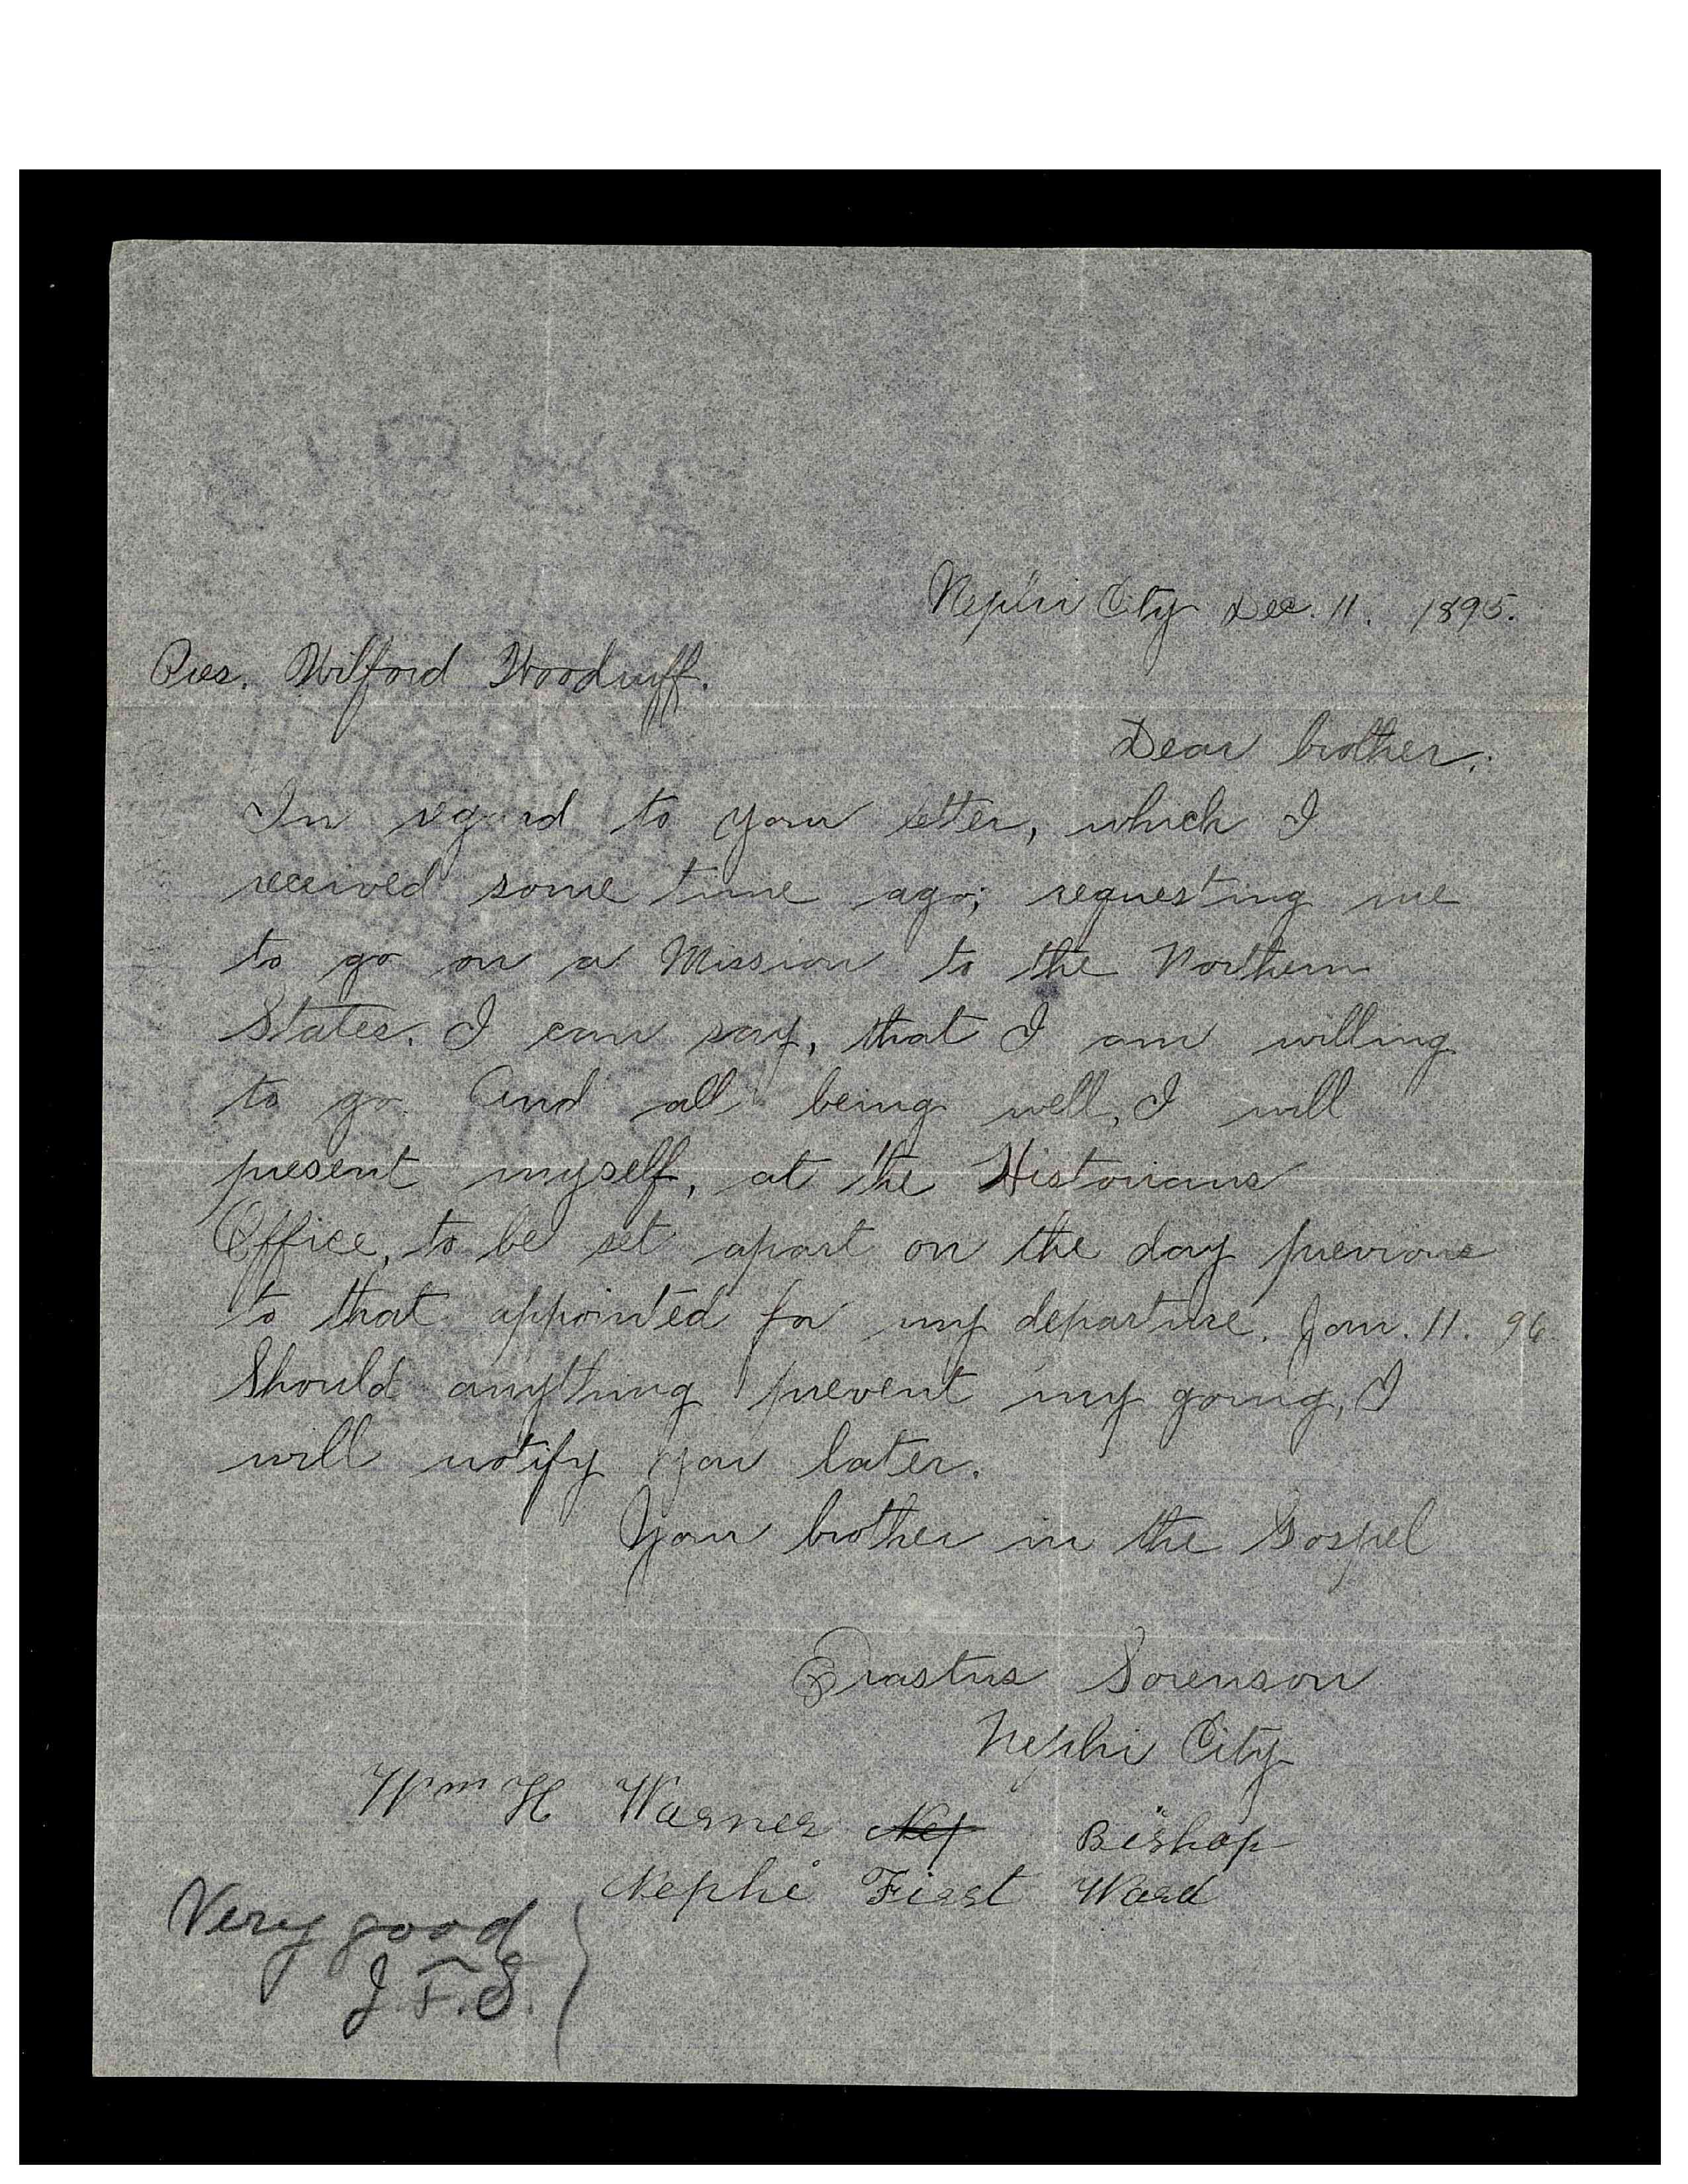 Nephi City Dec. 11. 1895.
Pres. Wilford Woodruff.
Dear brother.:
In regard to your letter, which I
received some time ago; requesting me
to go on a Mission to the Northern
States. I can say, that I am willing
to go. And all being well, I will
present myself, at the Historians
Office, to be set apart on the day previous
to that appointed for my departure. Jan. 11. 96
Should anything prevent my going, I
will notify you later.
Your brother in the Gospel
Erastus Sorenson
Nephi City
Wm H Warner Nep Bishop
Nephi First Ward
Very good
J.F.S.